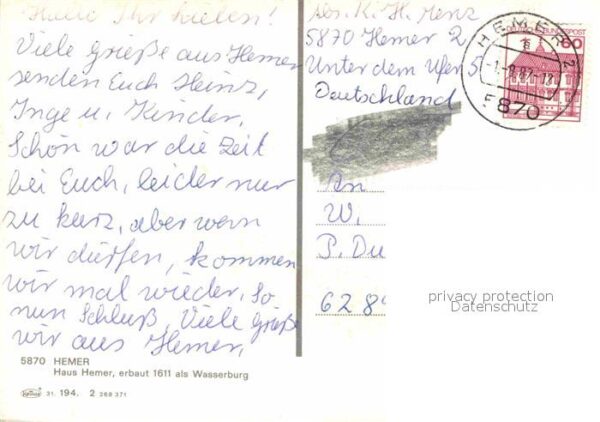 Hallo Ihr Lieben!
Viele Grüße aus Hemer
senden Euch Heinz,
Inge u. Kinder,
Schön war die Zeit
bei Euch, leider nur
zu kurz, aber wenn
wir dürfen, kommen
wir mal wieder. So
nun Schluß. Viele Grüße
wir aus Hemer.
5870 HEMER
Haus Hemer, erbaut 1611 als Wasserburg
31. 194. 2 268 371
Abs. K. H. Menz
5870 Hemer 2
Unter dem Ufer 5
Deutschland
An
W.
P. Du
62 89
HEMER 2
5870
60
privacy protection
Datenschutz